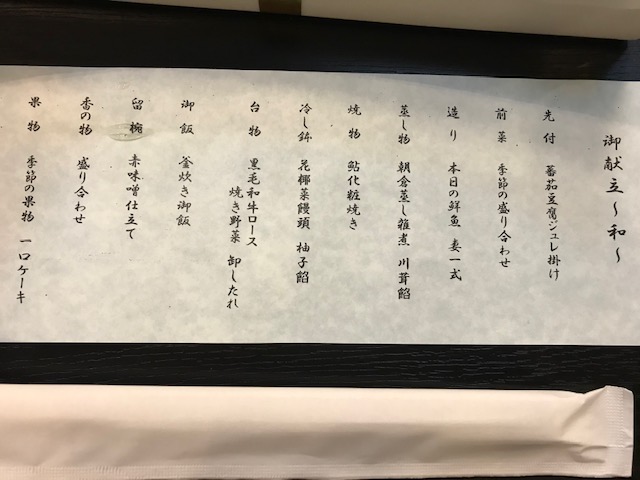 御献立～和～
先付 蕃茄豆腐ジュレ掛け
前菜 季節の盛り合わせ
造り 本日の鮮魚 妻一式
蒸し物 朝倉蒸し雑煮 川茸餡
焼物 鮎化粧焼き
冷し鉢 花椰菜饅頭 柚子餡
台物 黒毛和牛ロース
焼き野菜 卸したれ
御飯 釜炊き御飯
留椀 赤味噌仕立て
香の物 盛り合わせ
果物 季節の果物 一口ケーキ